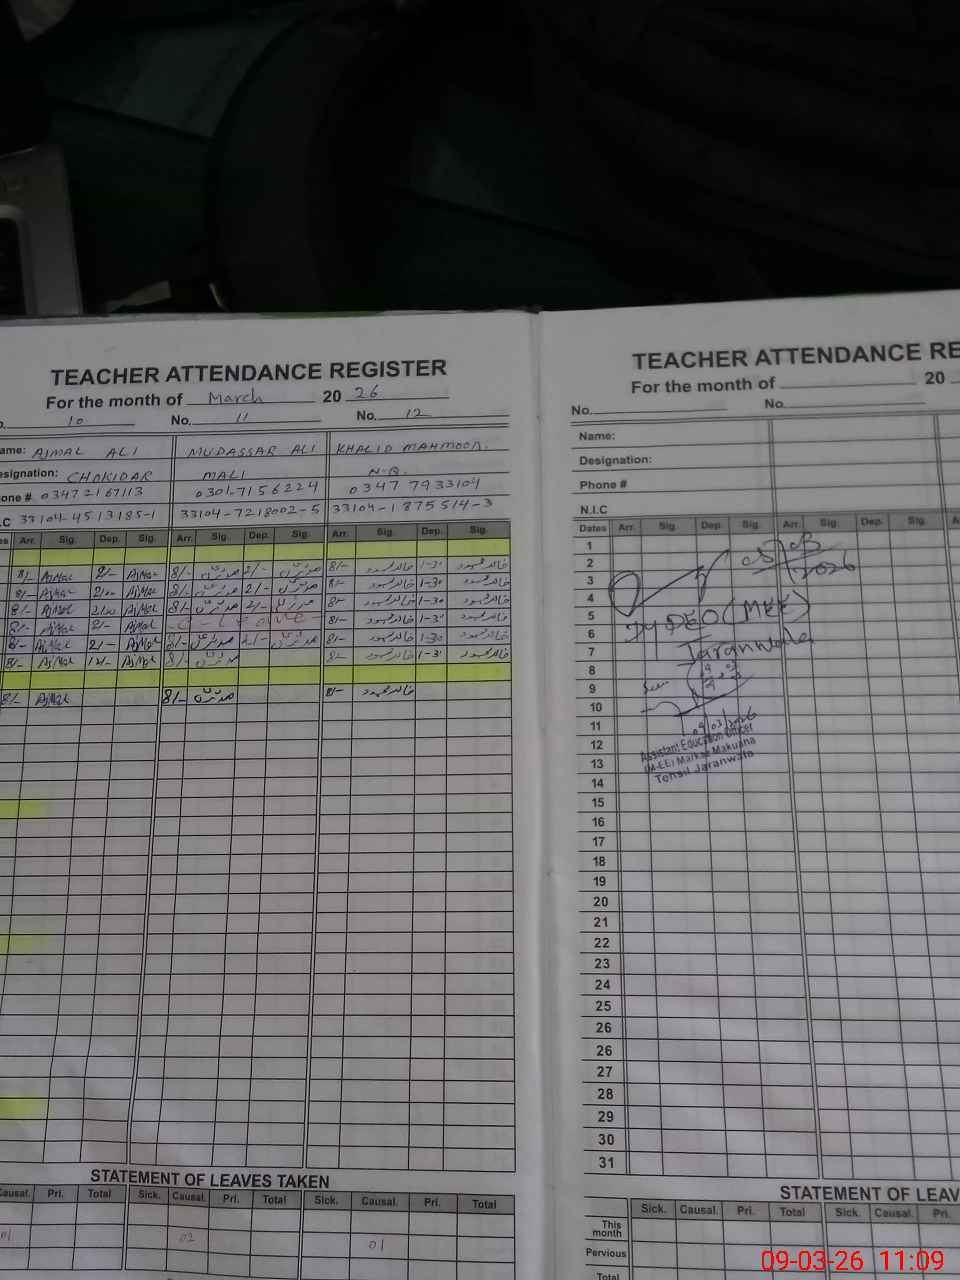 TEACHER ATTENDANCE REGISTER
For the month of March 20 26
10 No. 11 No. 12
AJMAL ALI MUDASSAR ALI KHALID MAHMOOD.
esignation: CHOKIDAR MALI N-Q.
one # 03472167113 0301-7156224 0347 7933104
C 33104-4513185-1 33104-7218002-5 33104-1875514-3
Arr. Sig. Dep. Sig. Arr. Sig. Dep. Sig. Arr. Sig. Dep. Sig.
8/- AjMal 2/- AjMal 8/- مدثر 2/- مدثر 8/- خالد محمود 1-30 خالد محمود
8/- AjMal 2/- AjMal 8/- مدثر 2/- مدثر 8/- خالد محمود 1-30 خالد محمود
8/- AjMal AjMal 8/- مدثر 2/- مدثر 8/- خالد محمود 1-30 خالد محمود
8/- AjMal 2/- AjMal C - Leave 8/- خالد محمود 1-30 خالد محمود
8/- AjMal 2/- AjMal 8/- مدثر 2/- مدثر 8/- خالد محمود 1-30 خالد محمود
8/- AjMal 12/- AjMal 8/- مدثر 8/- خالد محمود 1-30 خالد محمود
8/- AjMal 8/- مدثر 8/- خالد محمود
STATEMENT OF LEAVES TAKEN
Causal. Pri. Total Sick. Causal. Pri. Total Sick. Causal. Pri. Total
01 02 01
TEACHER ATTENDANCE RE
For the month of 20
No. No.
Name:
Designation:
Phone #
N.I.C
Dates Arr. Sig. Dep. Sig. Arr. Sig. Dep. Sig.
1
2
3
4
5
6
7
8
9
10
11
12
13
14
15
16
17
18
19
20
21
22
23
24
25
26
26
27
28
29
30
31
2026
Dy DEO (MEE)
Jaranwala
Seen
09/03/2026
Assistant Education Officer
(M-EE) Markaz Makuana
Tehsil Jaranwala
STATEMENT OF LEAV
Sick. Causal. Pri. Total Sick. Causal. Pri.
This month
Pervious
Total
09-03-26 11:09